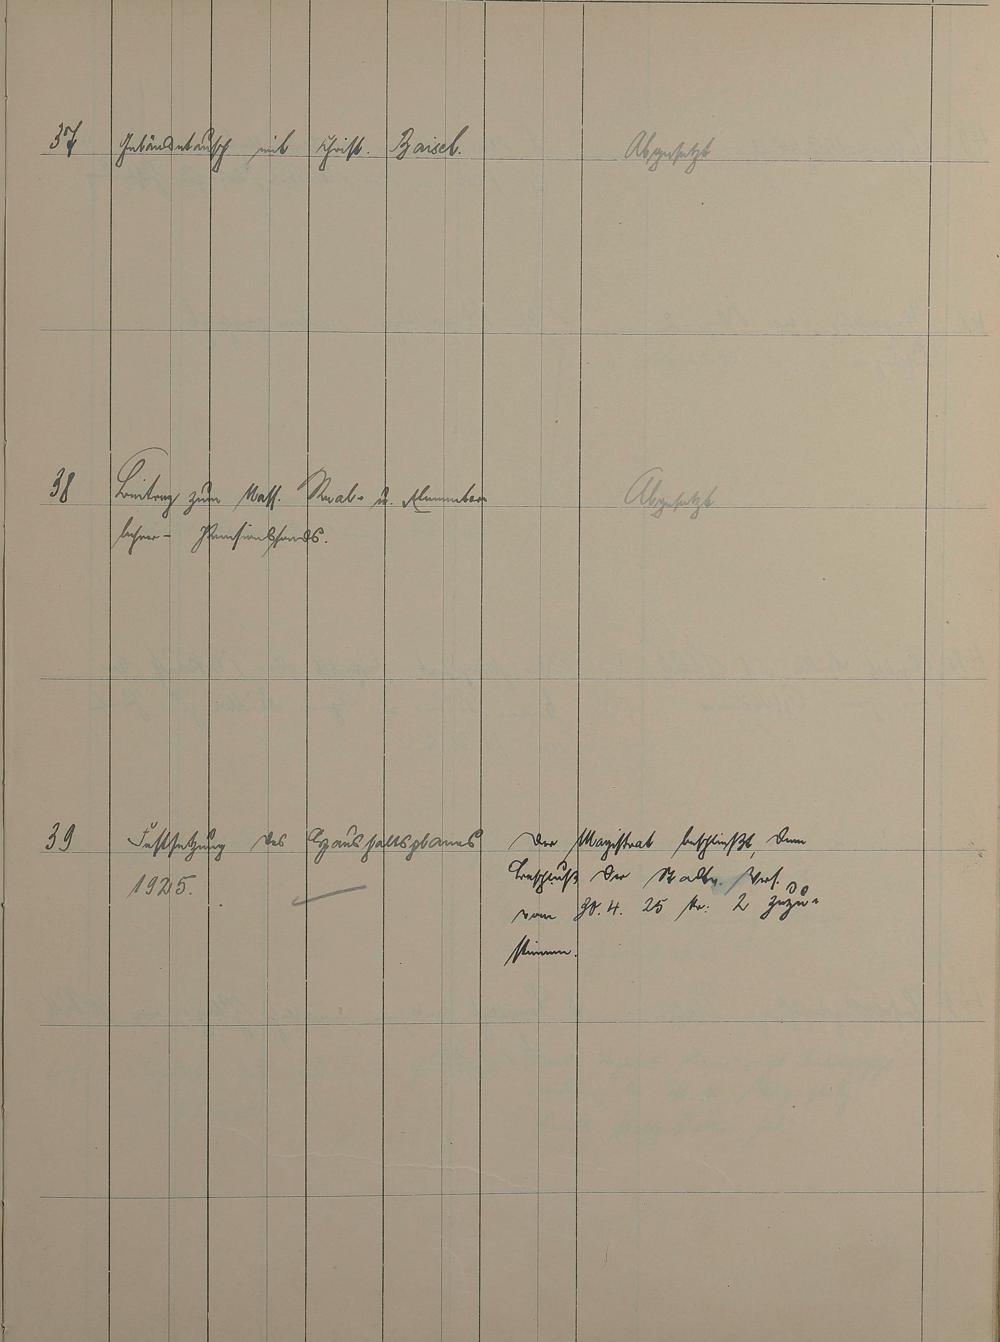 37 Geländetausch mit Christ. Baisel.
Abgesetzt
38 Beitrag zum Nass. Real- u. Elementar-
lehrer- Pensionsfonds.
Abgesetzt
39 Festsetzung des Haushaltsplanes
1925.
Der Magistrat beschließt, dem
Beschluß der Stadtv. Vers.
vom 30.4. 25 Nr: 2 zuzu-
stimmen.